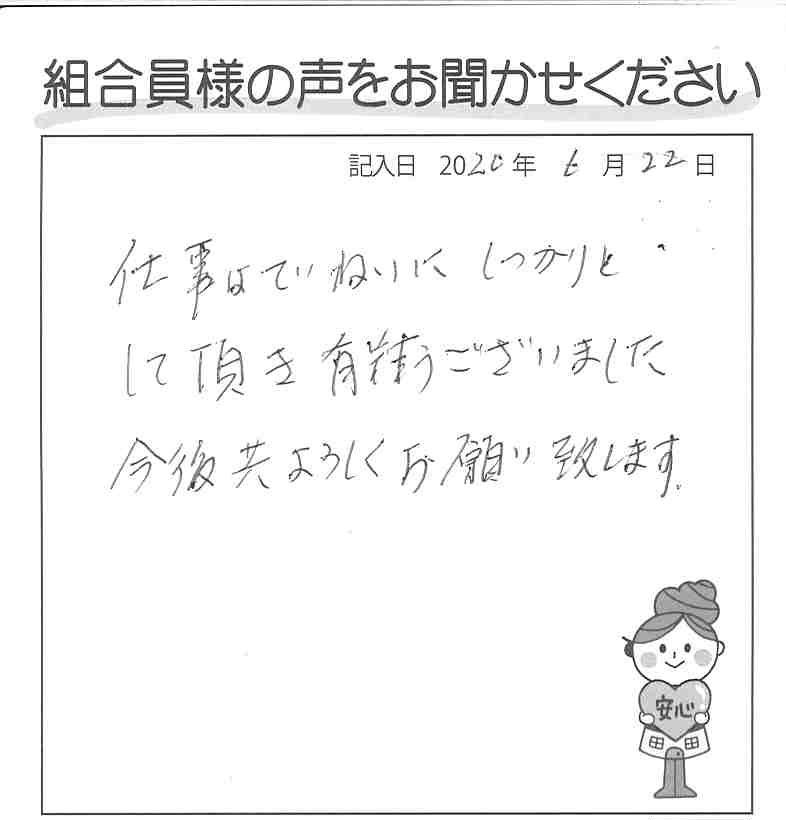 組合員様の声をお聞かせください
記入日 2020年 6月22日
仕事はていねいに しっかりと
して頂き有難うございました
今後共よろしくお願い致します。
安心